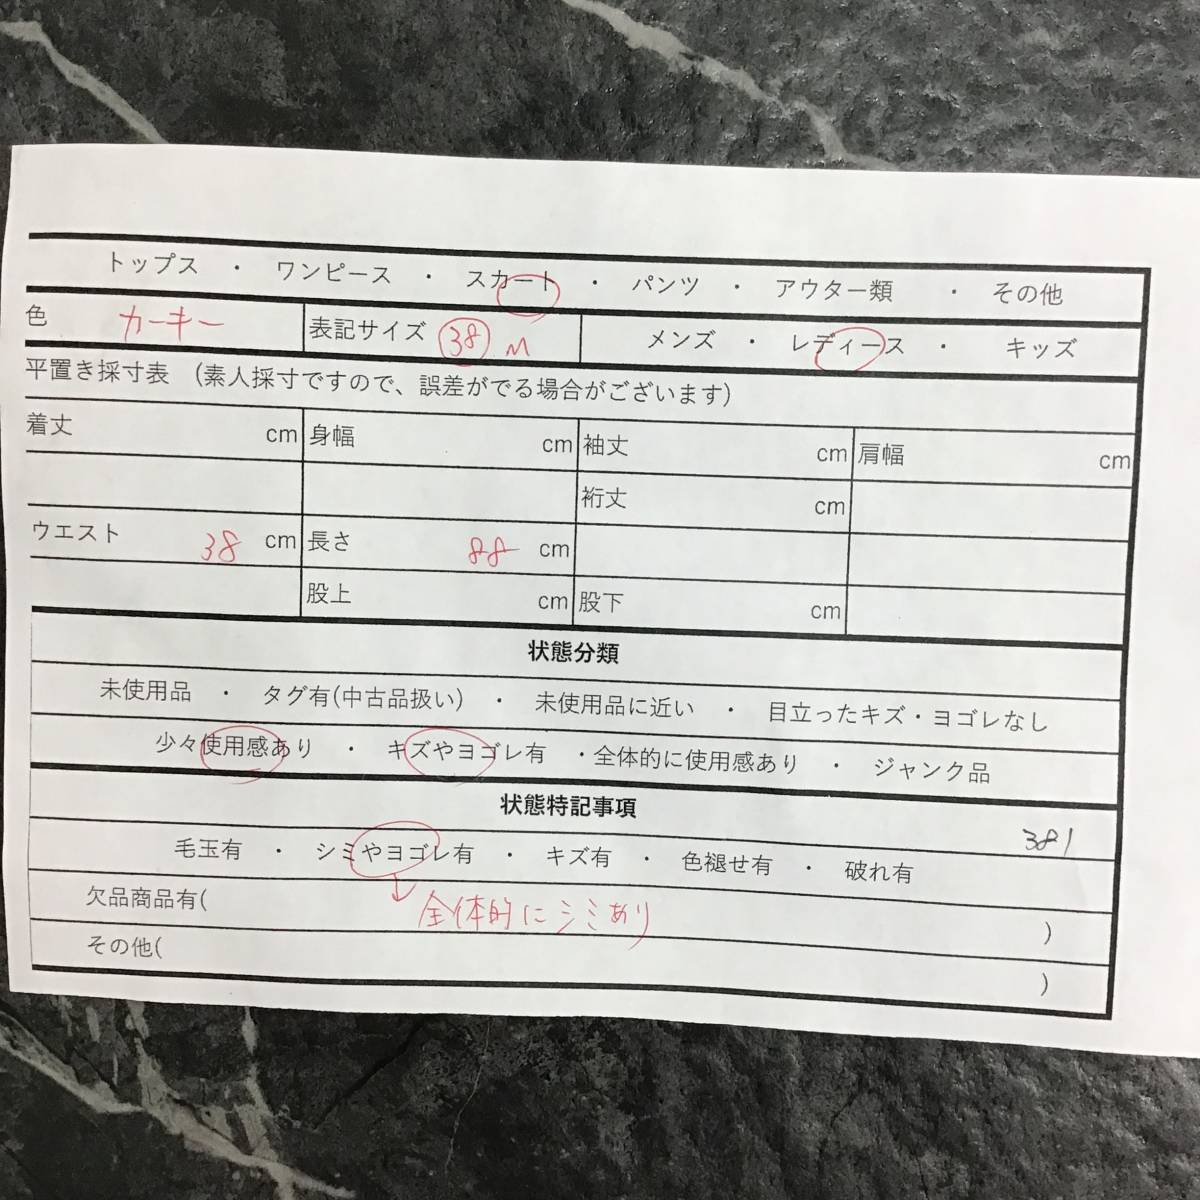 トップス ・ ワンピース ・ スカート ・ パンツ ・ アウター類 ・ その他
色 カーキー 表記サイズ 38 M メンズ ・ レディース ・ キッズ
平置き採寸表 (素人採寸ですので、誤差がでる場合がございます)
着丈 cm 身幅 cm 袖丈 cm 肩幅 cm
裄丈 cm
ウエスト 38 cm 長さ 88 cm
股上 cm 股下 cm
状態分類
未使用品 ・ タグ有(中古品扱い) ・ 未使用品に近い ・ 目立ったキズ・ヨゴレなし
少々使用感あり ・ キズやヨゴレ有 ・全体的に使用感あり ・ ジャンク品
状態特記事項
381
毛玉有 ・ シミやヨゴレ有 ・ キズ有 ・ 色褪せ有 ・ 破れ有
欠品商品有( 全体的にシミあり )
その他( )